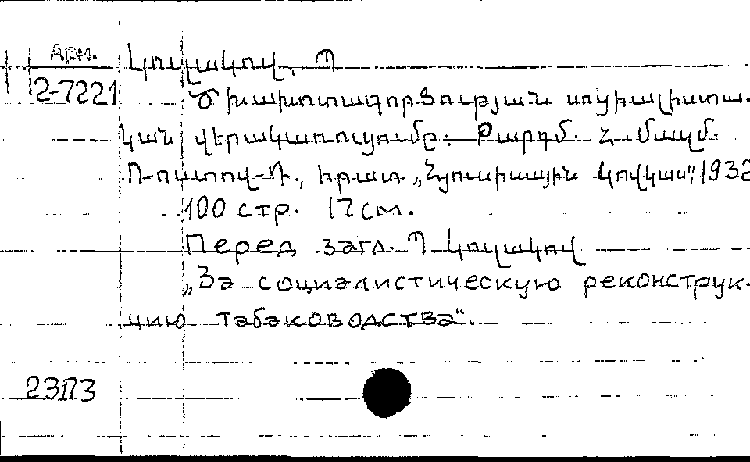 Арм.
2-7221
Կուլակով, Պ
Ծխախոտագործության սոցիալիստա-
կան վերակառուցումը. Թարգմ. Հ. Մամ.
Ռոստով-Դ., հրատ. „Հյուսիսային կովկաս", 1932
100 стр. 17 см.
Перед загл. Պ Կուլակով
„За социалистическую реконструк-
цию табаководства".
23173